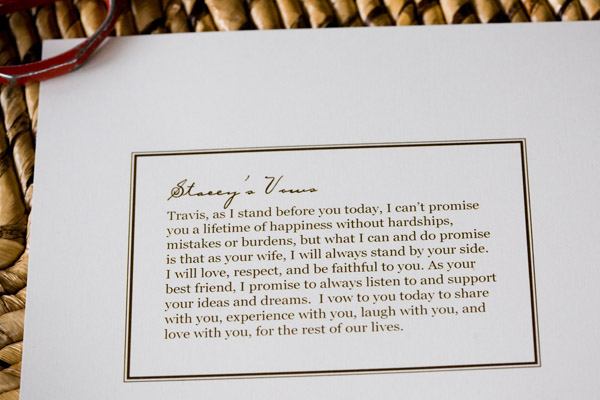 Stacey's Vows
Travis, as I stand before you today, I can't promise
you a lifetime of happiness without hardships,
mistakes or burdens, but what I can and do promise
is that as your wife, I will always stand by your side.
I will love, respect, and be faithful to you. As your
best friend, I promise to always listen to and support
your ideas and dreams.  I vow to you today to share
with you, experience with you, laugh with you, and
love with you, for the rest of our lives.